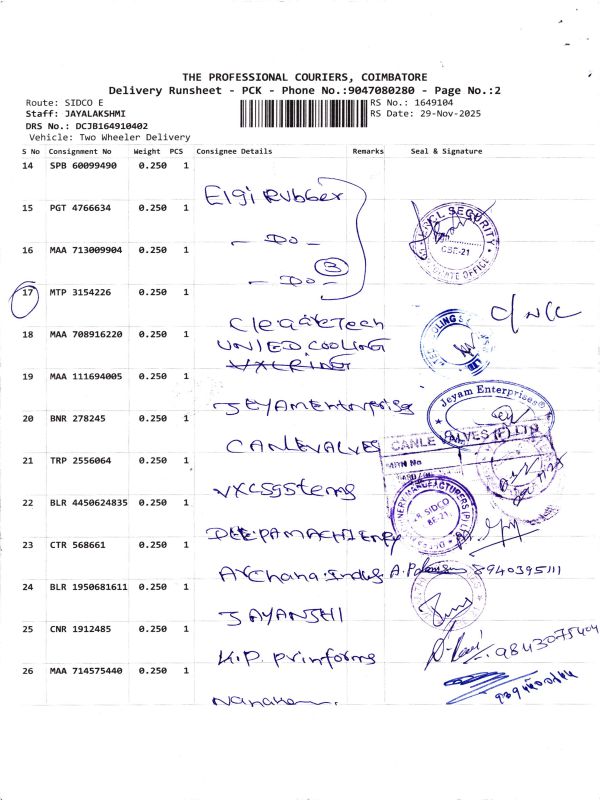 THE PROFESSIONAL COURIERS, COIMBATORE
Delivery Runsheet - PCK - Phone No.:9047080280 - Page No.:2
Route: SIDCO E
RS No.: 1649104
Staff: JAYALAKSHMI
RS Date: 29-Nov-2025
DRS No.: DCJB164910402
Vehicle: Two Wheeler Delivery
S No Consignment No Weight PCS Consignee Details Remarks Seal & Signature
14 SPB 60099490 0.250 1
Elgi Rubber
15 PGT 4766634 0.250 1
- DO -
16 MAA 713009904 0.250 1
- DO -
3
17 MTP 3154226 0.250 1
18 MAA 708916220 0.250 1
UNIED COOLING
19 MAA 111694005 0.250 1
JEYAM Enterprise
Jeyam Enterprises
20 BNR 278245 0.250 1
CANLEVALVES
CANLE VALVES (P) LTD
21 TRP 2556064 0.250 1
VXCSystems
22 BLR 4450624835 0.250 1
SIDCO
23 CTR 568661 0.250 1
Archana. Indus 8940395111
24 BLR 1950681611 0.250 1
JAYANSHI
25 CNR 1912485 0.250 1
K.P. Prinforms
9843075404
26 MAA 714575440 0.250 1